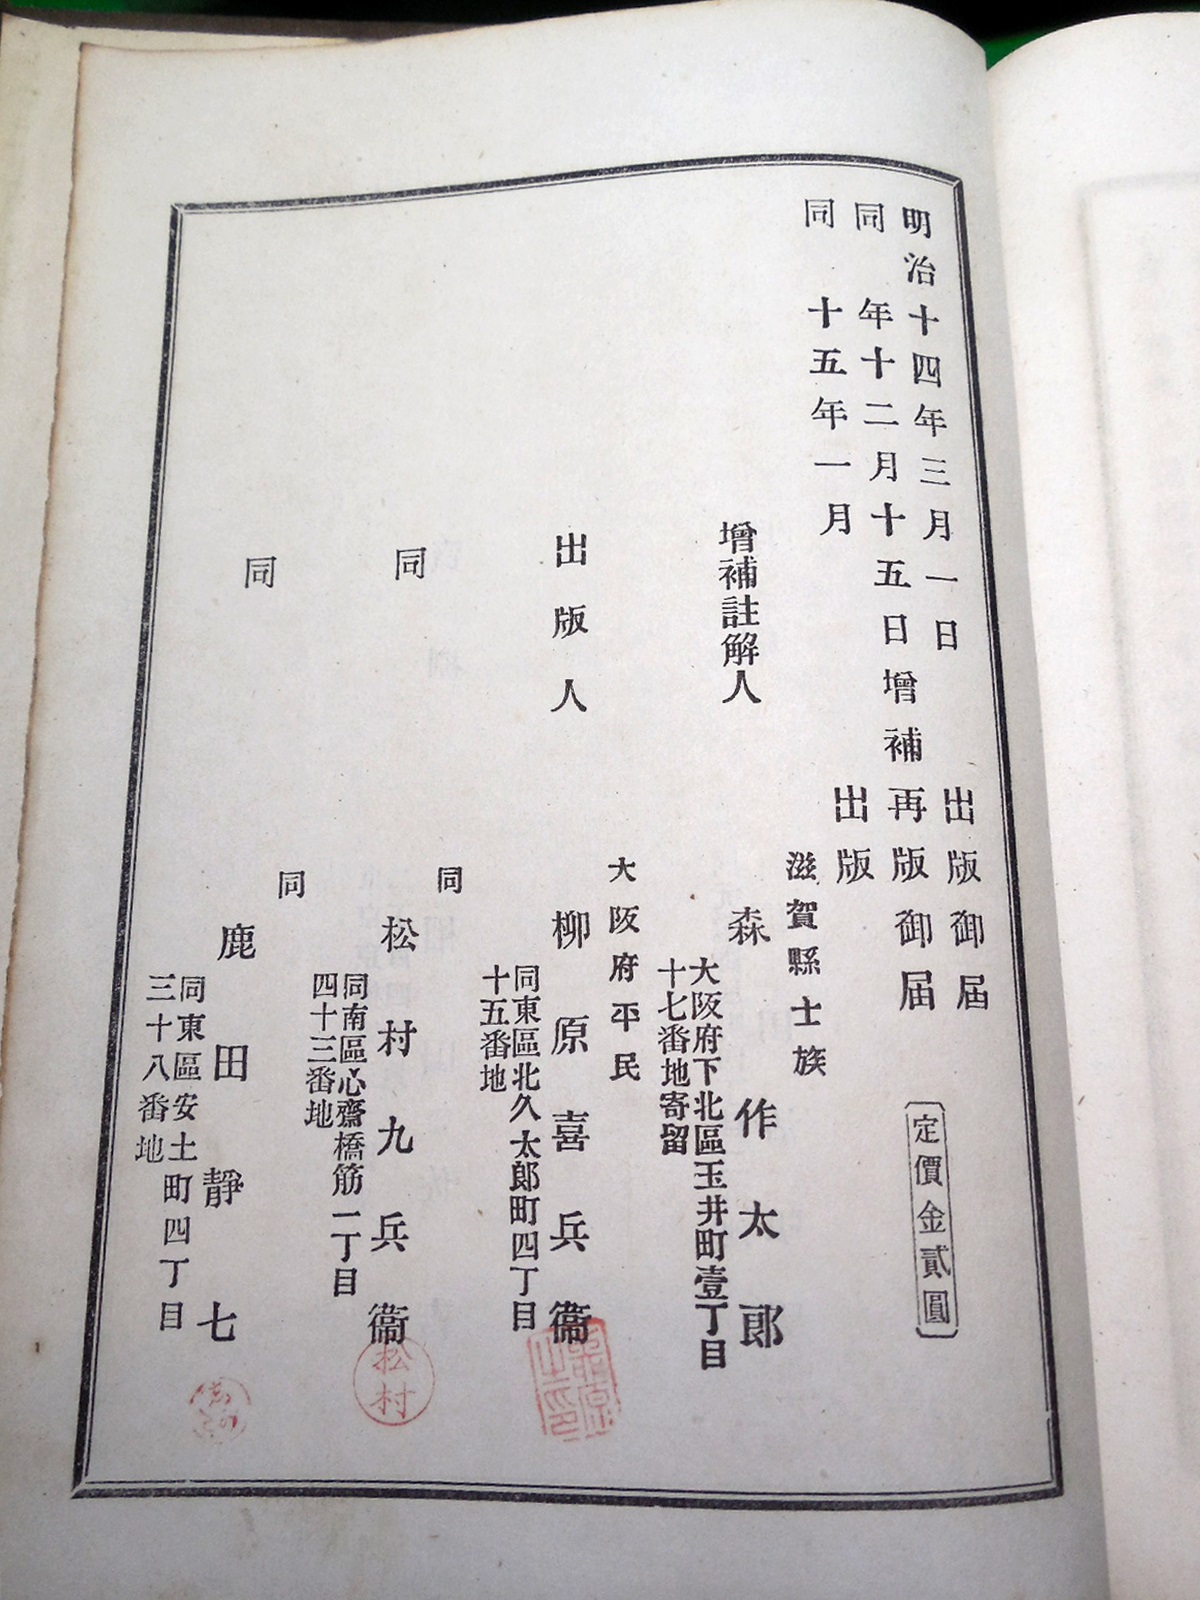 明治十四年三月一日出版御屆
同年十二月十五日增補再版御屆
同十五年一月出版
定價金貳圓
滋賀縣士族
增補註解人森作太郎
大阪府下北區玉井町壹丁目
十七番地寄留
大阪府平民
出版人柳原喜兵衞
同東區北久太郎町四丁目
十五番地
同
同松村九兵衞
松村
同南區心齋橋筋一丁目
四十三番地
同
同鹿田靜七
同東區安土町四丁目
三十八番地